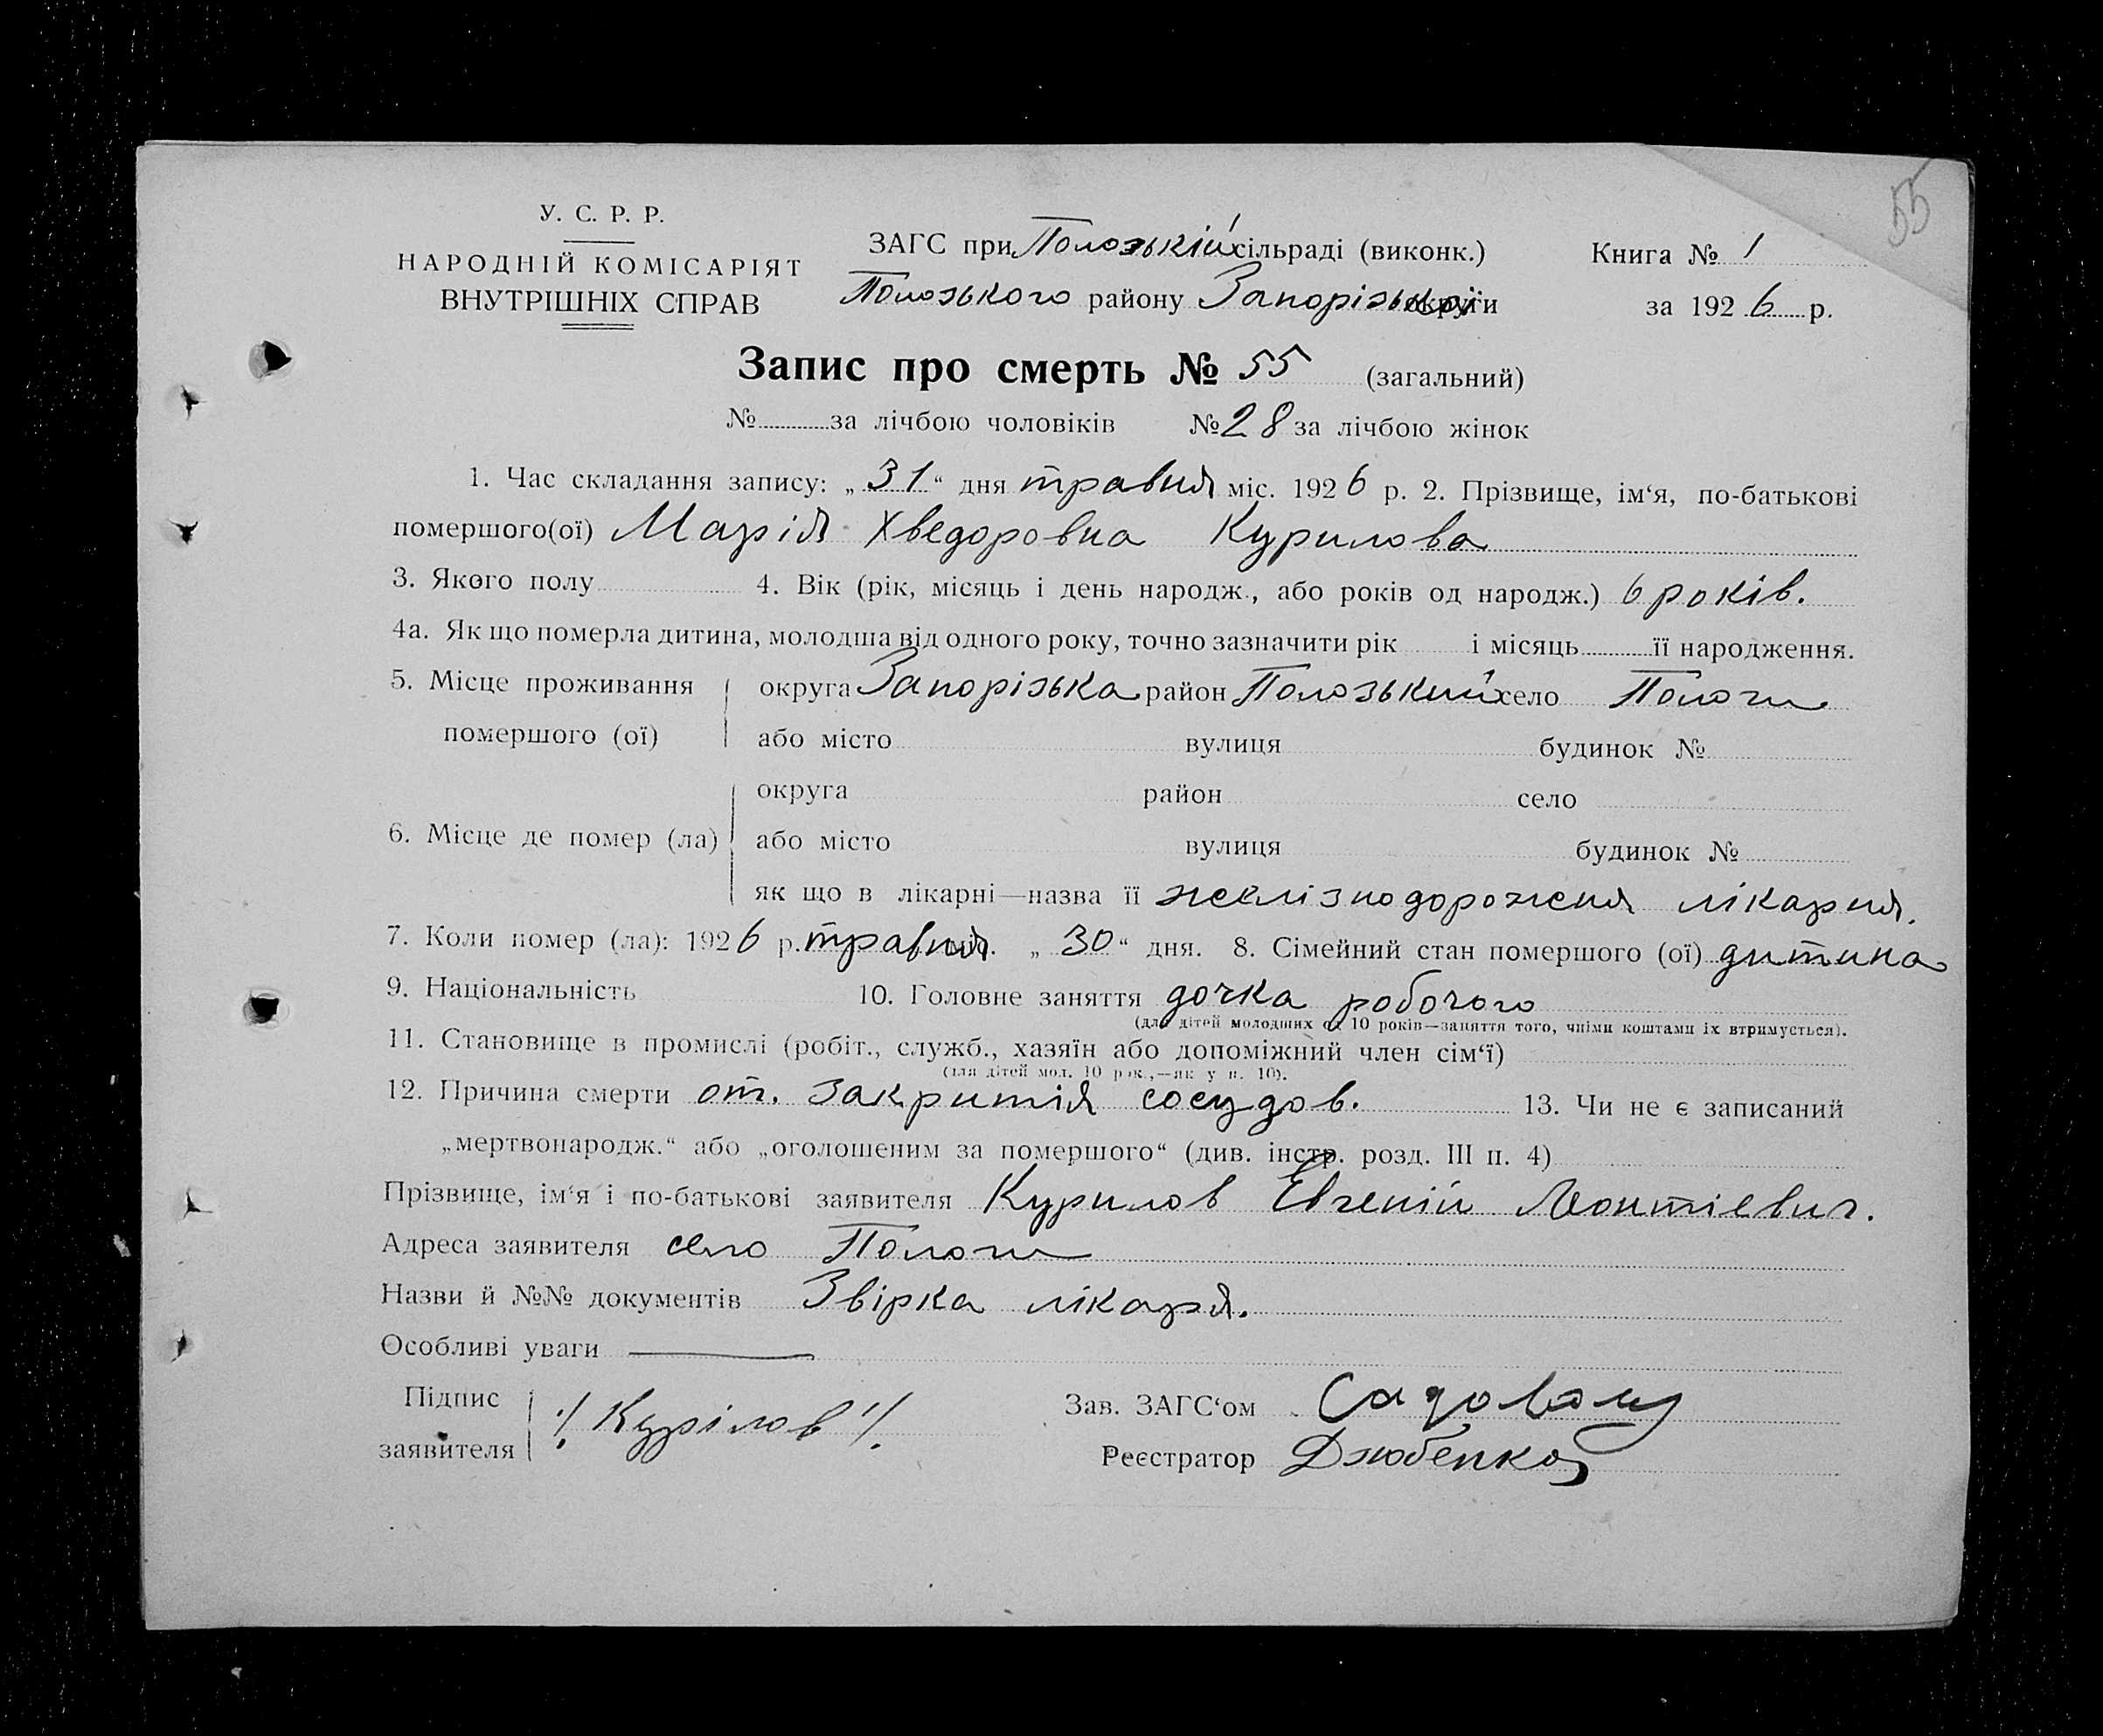 55
У. С. Р. Р.
НАРОДНІЙ КОМІСАРІЯТ
ВНУТРІШНІХ СПРАВ
ЗАГС при Полозькій сільраді (виконк.)
Полозького району Запорізької округи
Книга № 1
за 1926 р.
Запис про смерть № 55 (загальний)
№ за лічбою чоловіків № 28 за лічбою жінок
1. Час складання запису: „31“ дня травня міс. 1926 р. 2. Прізвище, ім‘я, по-батькові
помершого(ої) Марія Хведоровна Курилова
3. Якого полу 4. Вік (рік, місяць і день народж., або років од народж.) 6 років.
4а. Як що померла дитина, молодша від одного року, точно зазначити рік і місяць її народження.
5. Місце проживання помершого (ої) округа Запорізька район Полозький село Пологи
або місто вулиця будинок №
округа район село
6. Місце де помер (ла) або місто вулиця будинок №
як що в лікарні—назва її желізнодорожня лікарня.
7. Коли помер (ла): 1926 р. травня міс. „30“ дня. 8. Сімейний стан помершого (ої) дитина
9. Національність 10. Головне заняття дочка робочого
(для дітей молодших од 10 років—заняття того, чиїми коштами їх втримується).
11. Становище в промислі (робіт., служб., хазяїн або допоміжний член сім‘ї)
(для дітей мол. 10 рок.,—як у п. 10).
12. Причина смерти от. закритія сосудов. 13. Чи не є записаний
„мертвонародж.“ або „оголошеним за помершого“ (див. інстр. розд. III п. 4)
Прізвище, ім‘я і по-батькові заявителя Курилов Евгеній Леонтіевич.
Адреса заявителя село Пологи
Назви й №№ документів Звірка лікаря.
Особливі уваги
Підпис заявителя /Курілов/
Зав. ЗАГС‘ом
Реєстратор Дзюбенко